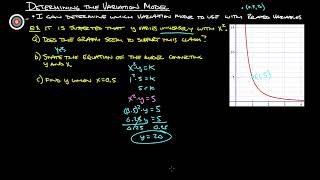 DETERMINING THE VARIATION MODEL
• I CAN DETERMINE WHICH VARIATION MODEL TO USE WITH RELATED VARIABLES
EX: IT IS SUSPECTED THAT y VARIES INVERSELY WITH x²
a) DOES THE GRAPH SEEM TO SUPPORT THIS CLAIM?
YES
b) STATE THE EQUATION OF THE MODEL CONNECTING
y AND x
x²·y = k
1²·5 = k
5 = k
c) FIND y WHEN x = 0.5
x²·y = 5
(0.5)²·y = 5
0.25y = 5
0.25 0.25
y = 20
(1, 5)